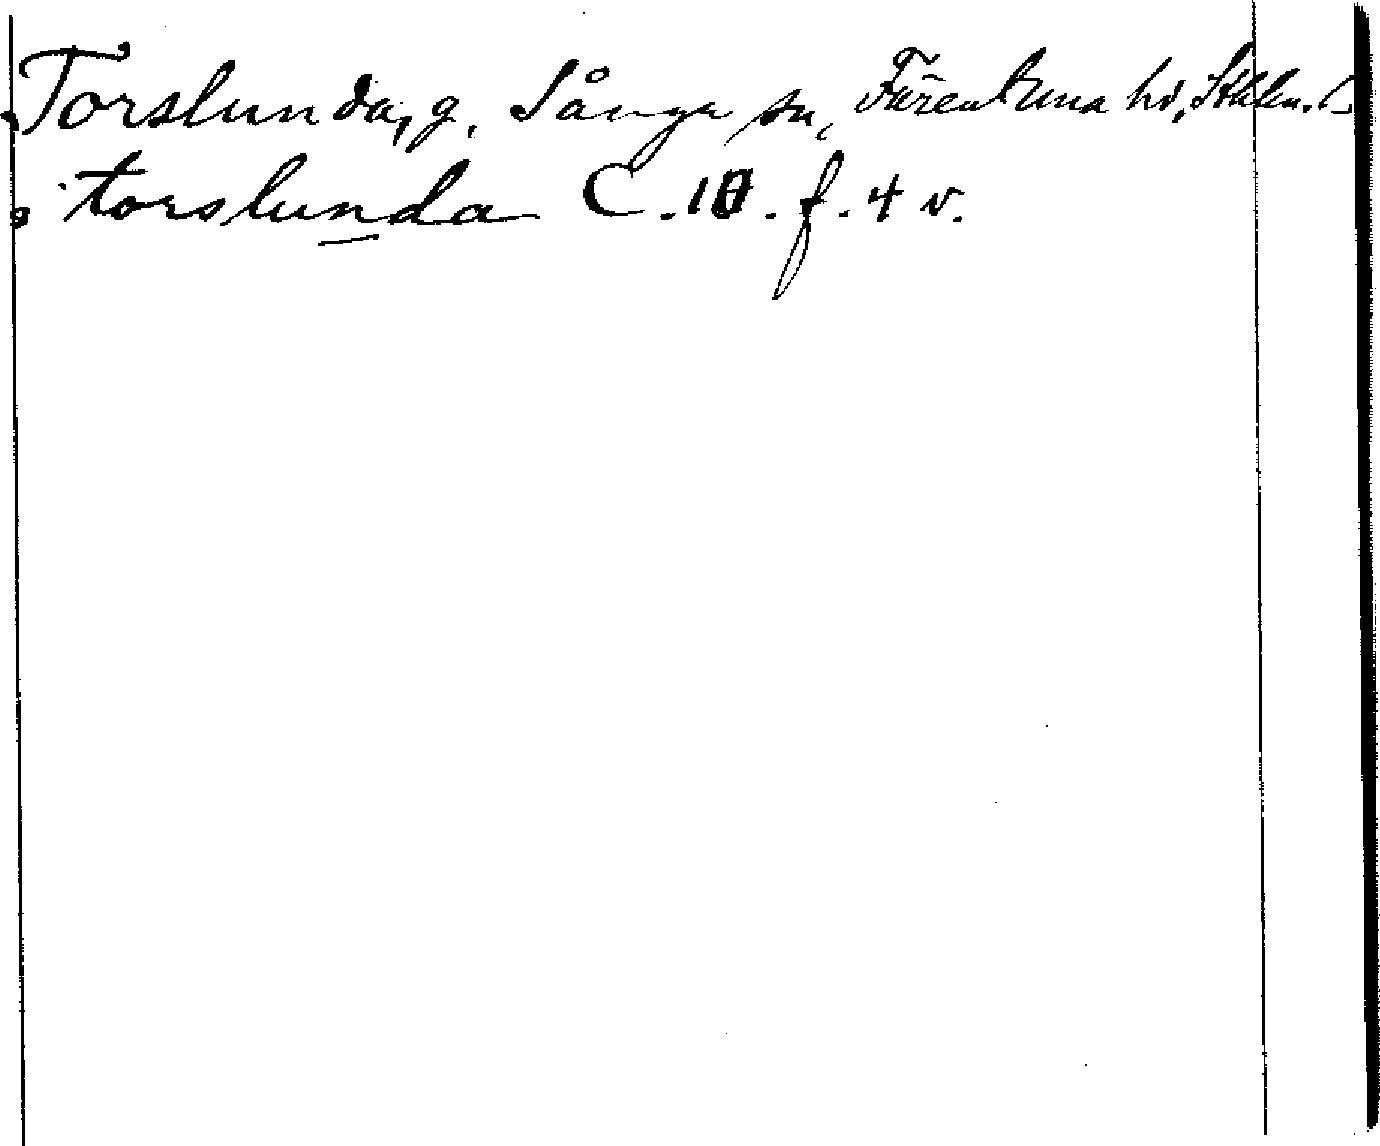 Torslunda, g. Sånga sn, Färentuna hd, Sthlm. l.
torslunda C. 10. f. 4 v.